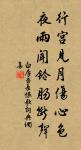 行宮見月傷心色
夜雨聞鈴腸斷聲
白居易長恨歌詞典網